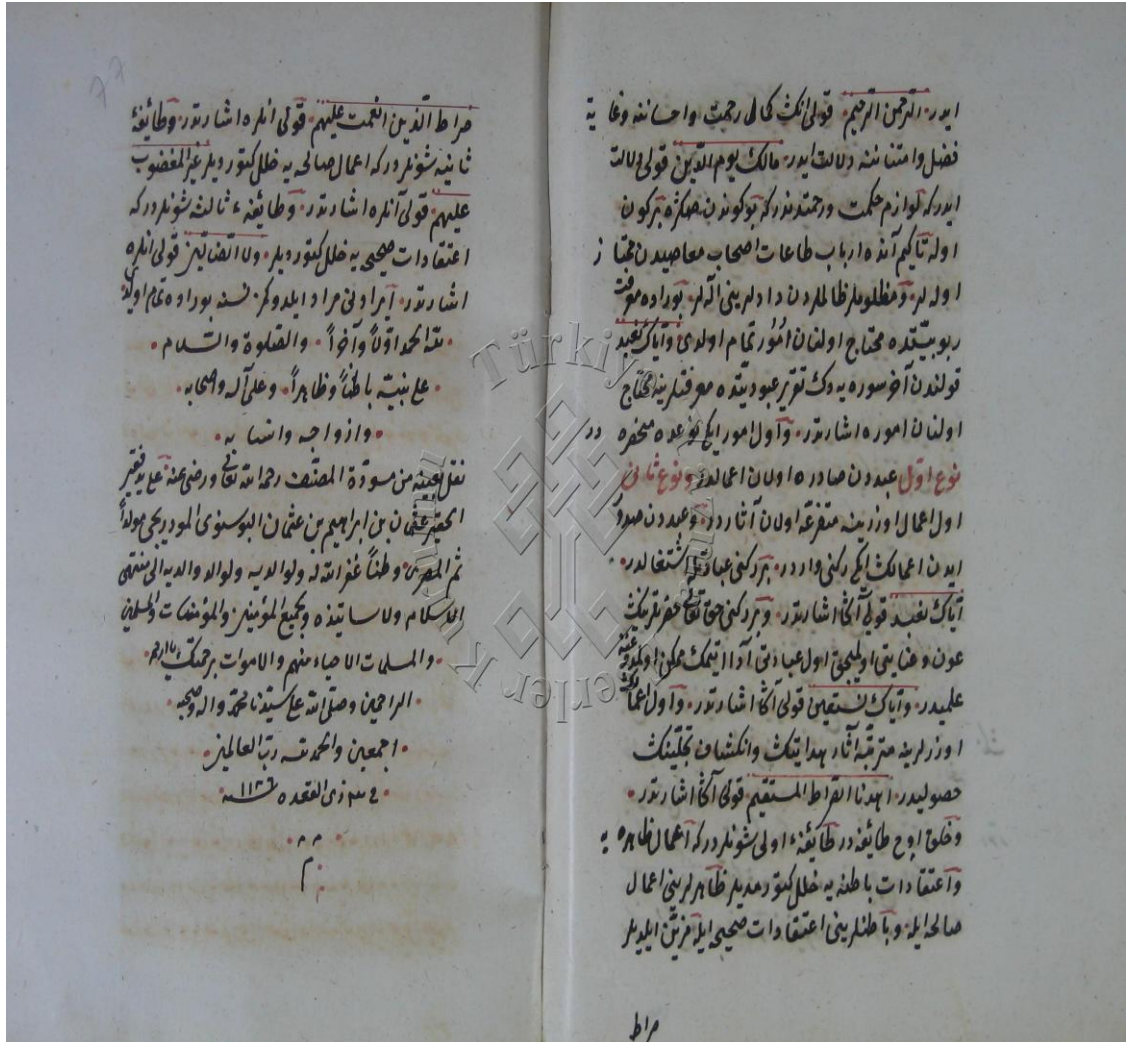 ايدر الرحمن الرحيم قولى انك كمال رحمت واحساننه وغايه
فضل وامتناننه دلالت ايدر مالك يوم الدين قولى دلالت
ايدركه لوازم حكمت ورحمتدندركه بوكوندن صكره بركون
اوله تاكيم آنده ارباب طاعات اصحاب معاصيدن ممتاز
اوله لر ومظلوملر ظالملردن دادلرينى آله لر بوراده معرفت
ربوبيتده محتاج اولنان امور تمام اولدى واياك نعبد
قولندن آخر سوره يه دك تقرير عبوديتده معرفتلرينه محتاج
اولنان اموره اشارتدر واول امور ايكى نوعده منحصره در
نوع اول عبددن صادره اولان اعمالدر ونوع ثانى
اول اعمال اوزرينه متفرعه اولان آثاردر وعبددن صدور
ايدن اعمالك ايكى ركنى واردر بر ركنى عبادتله اشتغالدر
اياك نعبد قولى آكا اشارتدر وبر ركنى حق تعالى حضرتلرينك
عون وعنايتى اولمينجق اول عبادتى آدا ايتمك ممكن اولمدوغنه
علميدر واياك نستعين قولى آكا اشارتدر واول اعمالك
اوزرلرينه مترتبه آثار هدايتك وانكشاف تجلينك
حصوليدر اهدنا الصراط المستقيم قولى آكا اشارتدر
وخلق اوچ طائفه در طائفهء اولى شونلردركه اعمال ظاهره يه
واعتقادات باطنه يه خلل كتورمديلر ظاهرلرينى اعمال
صالحه ايله وباطنلرينى اعتقادات صحيحه ايله مزين ايلديلر
صراط
صراط الذين انعمت عليهم قولى انلره اشارتدر وطائفهء
ثانيه شونلردركه اعمال صالحه يه خلل كتورديلر غير المغضوب
عليهم قولى آنلره اشارتدر وطائفهء ثالثه شونلردركه
اعتقادات صحيحه يه خلل كتورديلر ولا الضالين قولى انلره
اشارتدر ايرادنى مراد ايلدوكمز نسنه بوراده تمام اولدى
لله الحمد اولاً وآخراً والصلوة والسلام
على نبيه باطناً وظاهراً وعلى آله واصحابه
وازواجه وانسابه
نقل بعينه من مسودة المصنف رحمه الله تعالى ورضى عنه على يد فقير
الحقير عثمان بن ابراهيم بن عثمان البوسنوى مولداً
ثم المصرى وطناً غفر الله له ولوالديه ولوالد والديه الى منتهى
الاسلام ولاساتيذه ولجميع المؤمنين والمؤمنات والمسلمين
والمسلمات الاحياء منهم والاموات برحمتك يا ارحم
الراحمين وصلى الله على سيدنا محمد واله وصحبه
اجمعين والحمد لله رب العالمين
ذى القعده سنه ١١٣٦
م
Türkiye
Yazma Eserler Kurumu